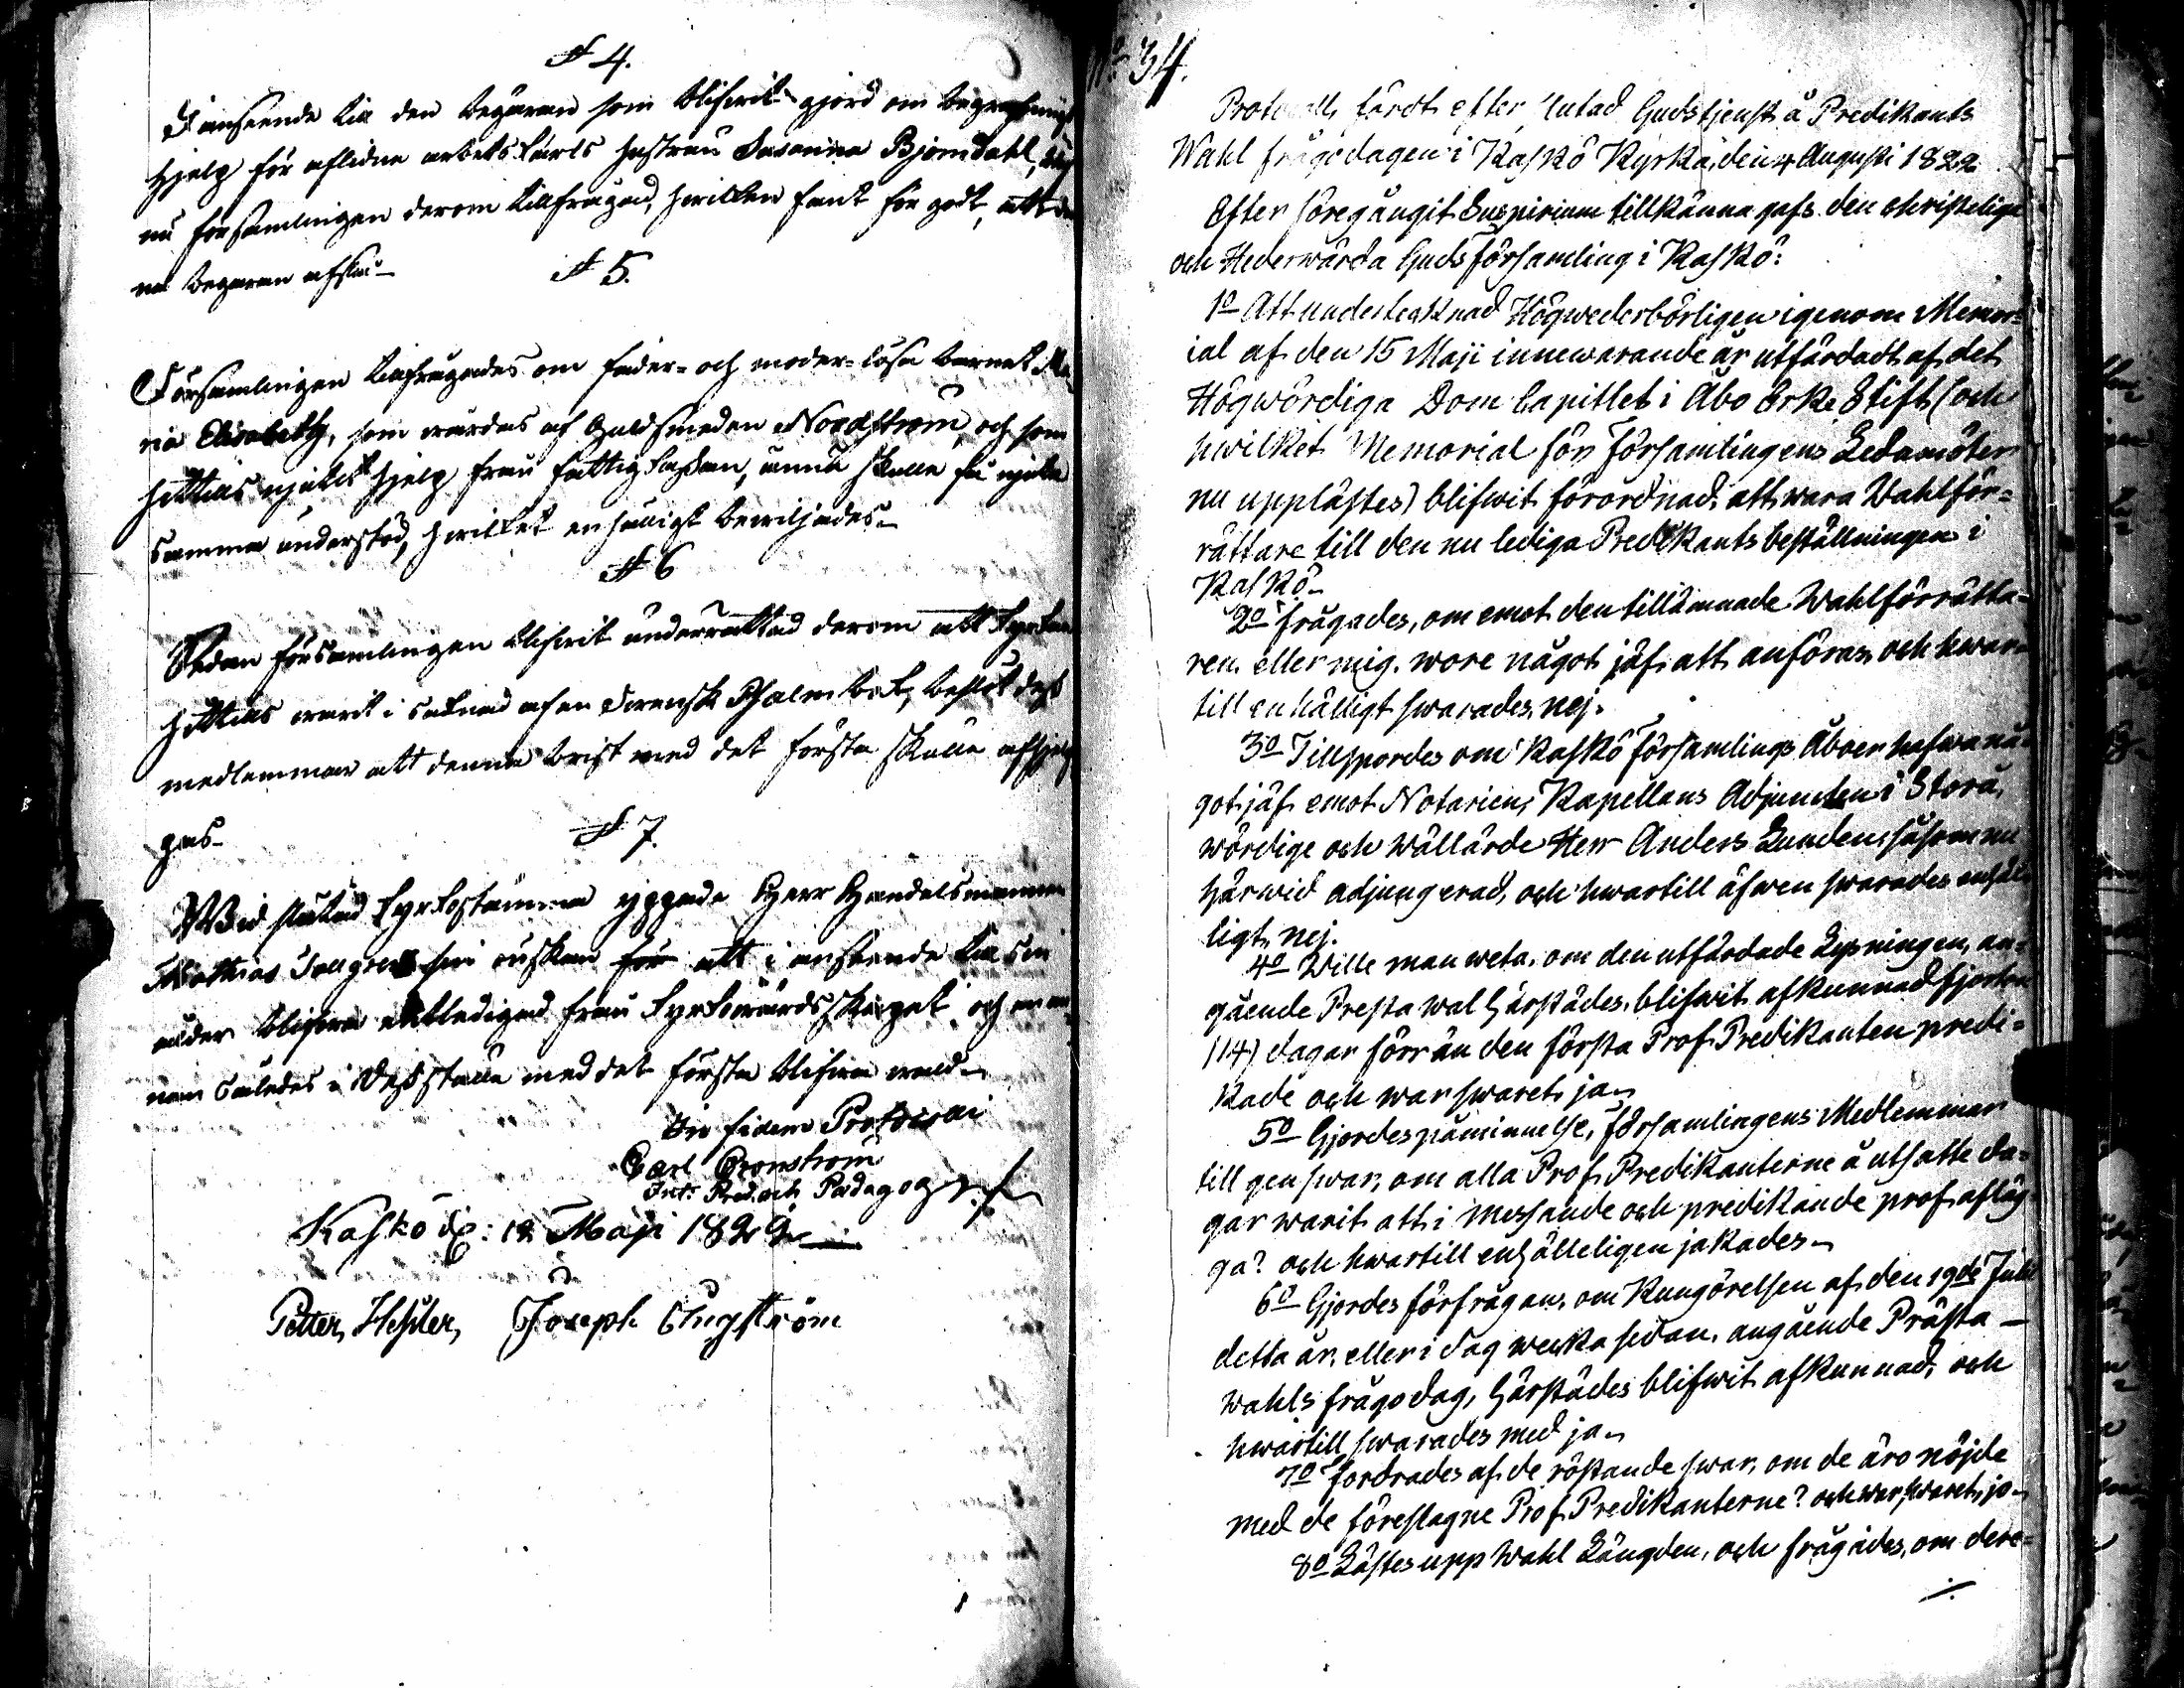 § 4.
I anseende till den begäran som blifwit gjord om begrafnings
hjelp för aflidne arbets karls hustrun Susanna Björndahl, blef
nu församlingen derom tillfrågad, hwilken fant för godt, att den
na begäran afslå
§ 5.
Församlingen tillfrågades om fader- och moder-lösa barnet Ma-
ria Elisabeth, som wårdas af Guldsmeden Nordström, och som
hittills njutit hjelp från fattig kassan, ännu skulle få njuta
samma understöd, hwilket enhälligt bewiljades.
§ 6
Sedan församlingen blifwit underrättad derom att kyrkan
hittills warit i saknad af en Swensk Psalmbok, beslöt dess
medlemmar att denna brist med det första skulle afhjel
pas
§ 7.
Wid slutad kyrkostämma yppade Herr Handelsmannen
Mathias sin önskan för att i anseende till sin
ålder blifwa entledigad från kyrkowärds skapet och en an
nan således i dess ställe med det första blifwa wald
In fidem Protocolli
Carl Cronström
Pred. och Pædagog
Kaskö d: 12 Maji 1822
Petter Hesler, Joseph Engström
No 34.
Protocoll, fördt efter slutad Gudstjenst å Predikants
Wahl frågodagen i Kaskö Kyrka, den 4 Augusti 1822
Efter föregångit Suspirium tillkänna gafs den christeliga
och Hederwärda Guds församling i Kaskö:
1o Att undertecknad Högwederbörligen igenom Memor=
ial af den 15 Maji innewarande år utfärdadt af det
Högwördiga Dom Capitlet i Åbo Erke Stift (och
hwilket Memorial för Församlingens Ledamöter
nu upplästes) blifwit förordnad, att wara Wahlför=
rättare till den nu lediga Predikants beställningen i
Kaskö
2o frågades, om emot den tillämnade Wahlförrätta=
ren eller mig, wore något jäf att anföras, och hwar=
till enhälligt swarades, nej.
3o Tillspordes om Kaskö församlings Åboer hafwa nå=
got jäf emot Notarien, Kapellans Adjuncten i Storå,
wördige och wällärde Herr Anders Lunden, såsom nu
härwid adjungerad, och hwartill äfwen swarades enhäl
ligt, nej.
4o Wille man weta, om den utfärdade Lysningen, an=
gående Presta wal härstädes, blifwit afkunnad fjorton
(14) dagar förrän den första Prof Predikanten predi=
kade och war swaret ja
5o Gjordes påminnelse, Församlingens Medlemmar
till gen swar, om alla Prof Predikanterne å utsatte da=
gar warit att i messande och predikande prof aflæg
ga? och hwartill enhälleligen jakades
6o Gjordes förfrågan, om Kungörelsen af den 19de Julii
detta år, eller i dag wecka sedan, angående Prästa
wahls frågodag, härstädes blifwit afkunnad, och
hwartill swarades med ja
7o fordrades af de röstande swar, om de äro nöjde
med de föreslagne Prof Predikanterne? och war swaret, jo
8o Lästes upp Wahl Längden, och frågades, om dere=
./.